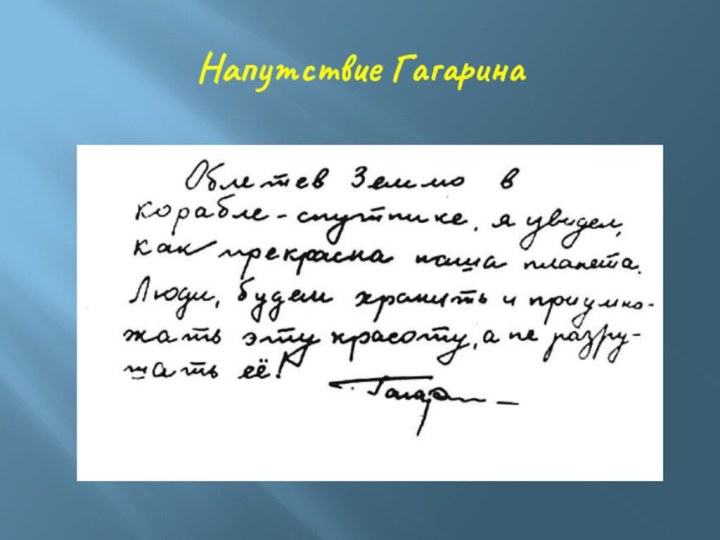 Напутствие Гагарина
Облетев Землю в
корабле-спутнике, я увидел,
как прекрасна наша планета.
Люди, будем хранить и приумно-
жать эту красоту, а не разру-
шать её!
Гагарин